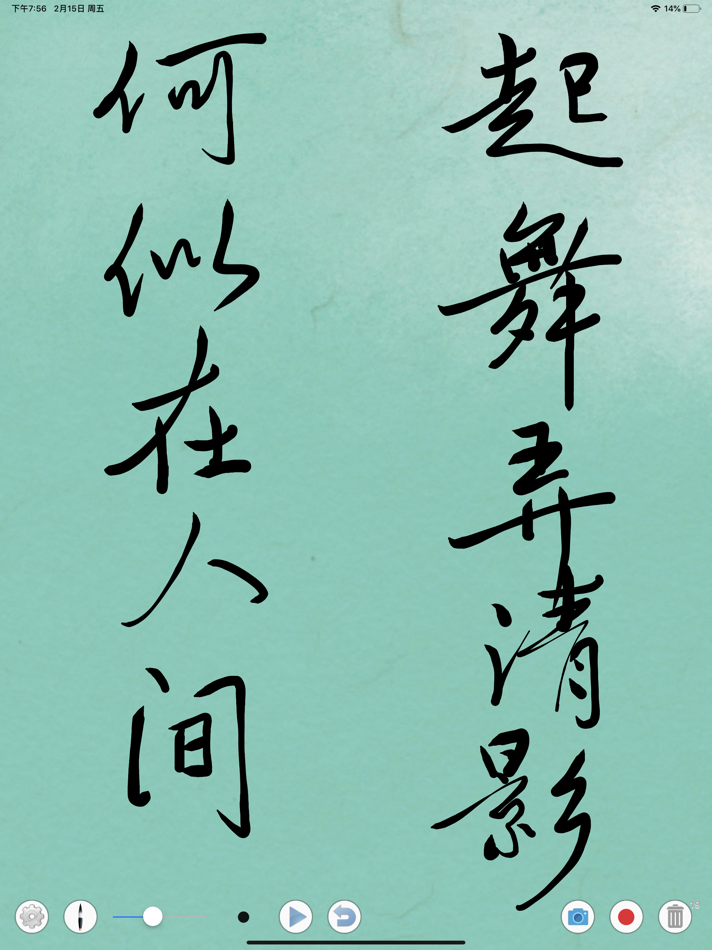 下午7:56 2月15日 周五
14%
起舞弄清影
何似在人间